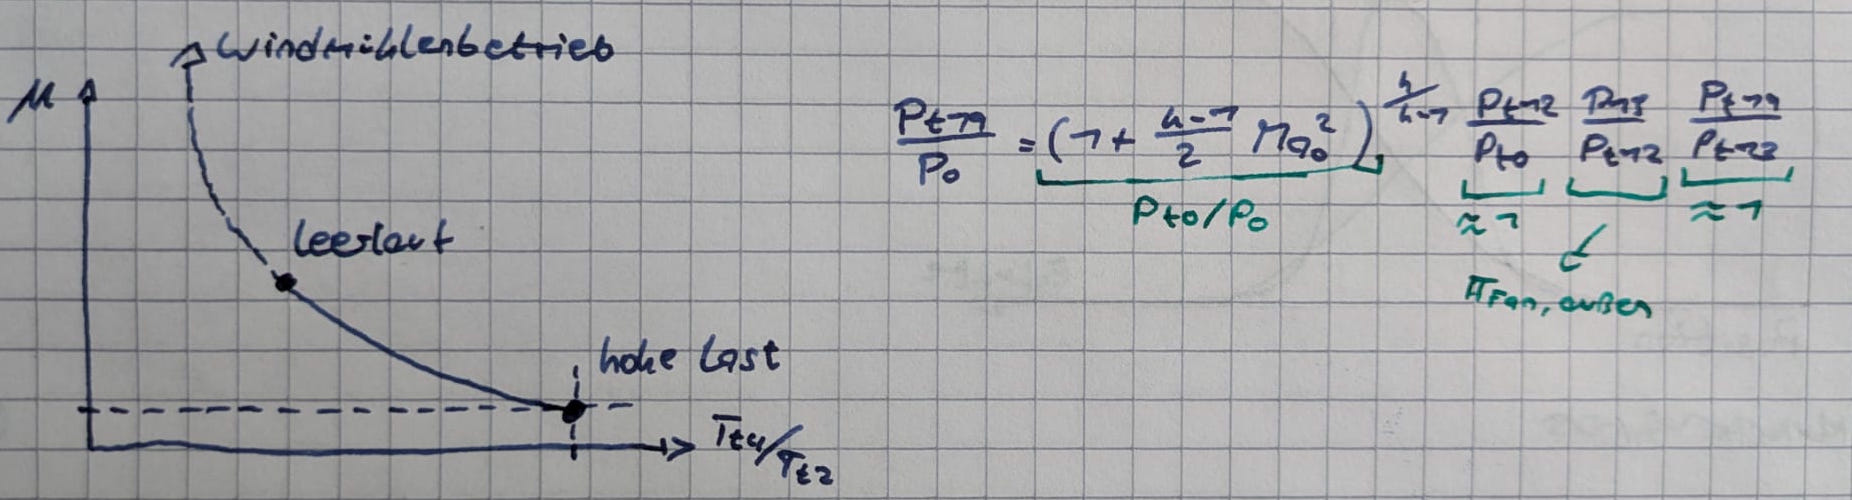 Windmühlenbetrieb
μ
Leerlauf
hohe Last
T_t4/T_t2
P_t19/P_0 = (1 + (κ-1)/2 Ma_0^2)^(κ/(κ-1)) P_t12/P_t0 P_t13/P_t12 P_t19/P_t13
P_t0/P_0 ≈1 ≈1
π_Fan, außen